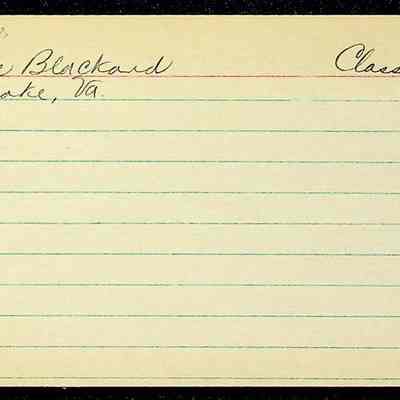 Blackard
Class
oake, Va.